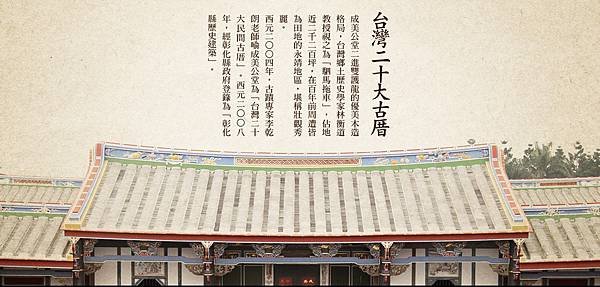 台灣二十大古厝
成美公堂二進雙護龍的優美木造
格局，台灣鄉土歷史學家林衡道
教授視之為『駟馬拖車』，佔地
近二千二百坪，在百年前周遭皆
為田地的永靖地區，堪稱壯觀秀
麗。
西元二〇〇四年，古蹟專家李乾
朗老師喻成美公堂為『台灣二十
大民間古厝』。西元二〇〇八
年，經彰化縣政府登錄為『彰化
縣歷史建築』。